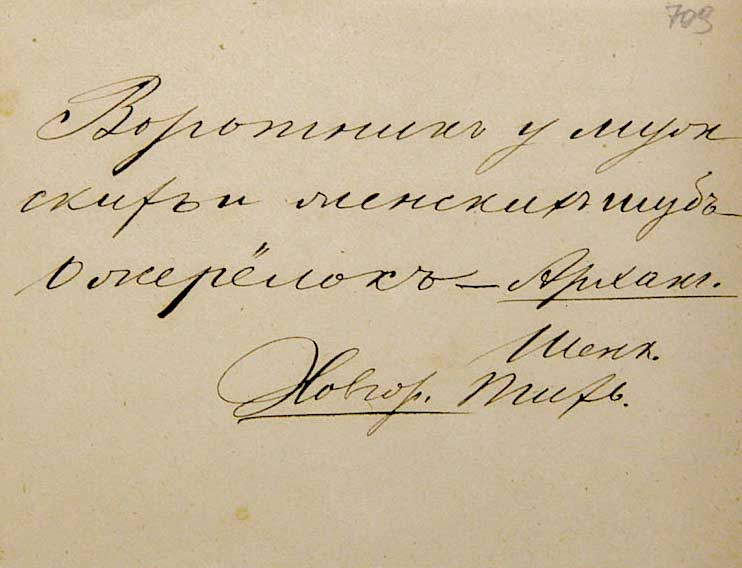 709
Воротникъ у муж
скихъ и женскихъ шубъ –
Ожерёлокъ – Арханг.
Шенк.
Новгор. Тихв.